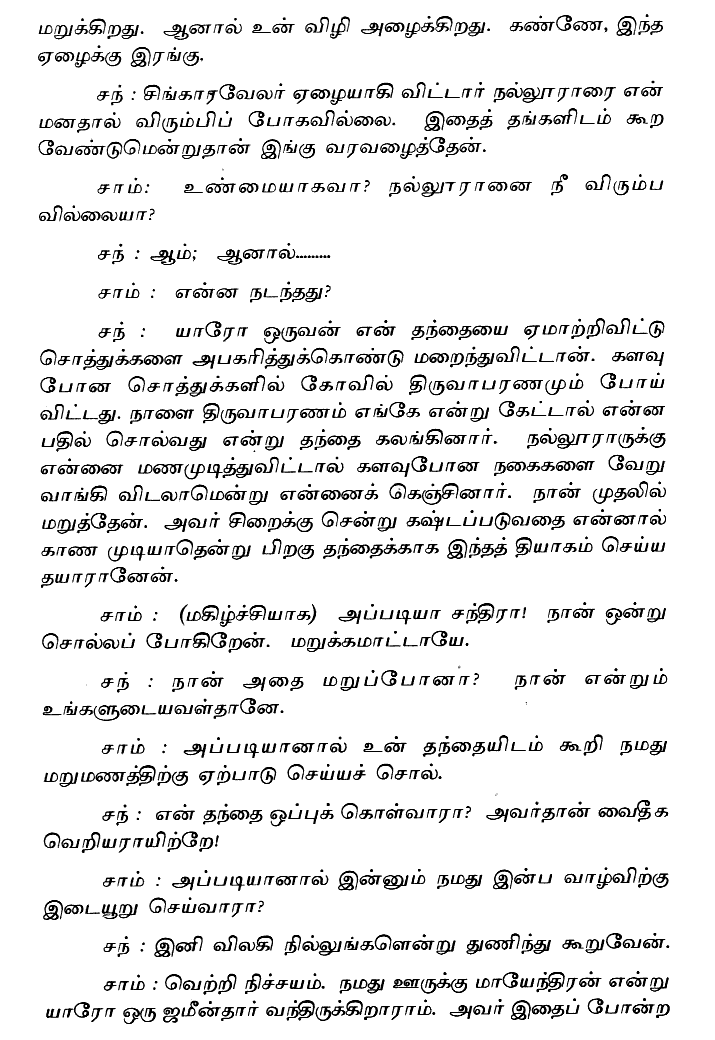 மறுக்கிறது. ஆனால் உன் விழி அழைக்கிறது. கண்ணே, இந்த
ஏழைக்கு இரங்கு.
சந் : சிங்காரவேலர் ஏழையாகி விட்டார் நல்லூராரை என்
மனதால் விரும்பிப் போகவில்லை. இதைத் தங்களிடம் கூற
வேண்டுமென்றுதான் இங்கு வரவழைத்தேன்.
சாம்: உண்மையாகவா? நல்லூரானை நீ விரும்ப
வில்லையா?
சந் : ஆம்; ஆனால்.........
சாம் : என்ன நடந்தது?
சந் : யாரோ ஒருவன் என் தந்தையை ஏமாற்றிவிட்டு
சொத்துக்களை அபகரித்துக்கொண்டு மறைந்துவிட்டான். களவு
போன சொத்துக்களில் கோவில் திருவாபரணமும் போய்
விட்டது. நாளை திருவாபரணம் எங்கே என்று கேட்டால் என்ன
பதில் சொல்வது என்று தந்தை கலங்கினார். நல்லூராருக்கு
என்னை மணமுடித்துவிட்டால் களவுபோன நகைகளை வேறு
வாங்கி விடலாமென்று என்னைக் கெஞ்சினார். நான் முதலில்
மறுத்தேன். அவர் சிறைக்கு சென்று கஷ்டப்படுவதை என்னால்
காண முடியாதென்று பிறகு தந்தைக்காக இந்தத் தியாகம் செய்ய
தயாரானேன்.
சாம் : (மகிழ்ச்சியாக) அப்படியா சந்திரா! நான் ஒன்று
சொல்லப் போகிறேன். மறுக்கமாட்டாயே.
சந் : நான் அதை மறுப்போனா? நான் என்றும்
உங்களுடையவள்தானே.
சாம் : அப்படியானால் உன் தந்தையிடம் கூறி நமது
மறுமணத்திற்கு ஏற்பாடு செய்யச் சொல்.
சந் : என் தந்தை ஒப்புக் கொள்வாரா? அவர்தான் வைதீக
வெறியராயிற்றே!
சாம் : அப்படியானால் இன்னும் நமது இன்ப வாழ்விற்கு
இடையூறு செய்வாரா?
சந் : இனி விலகி நில்லுங்களென்று துணிந்து கூறுவேன்.
சாம் : வெற்றி நிச்சயம். நமது ஊருக்கு மாயேந்திரன் என்று
யாரோ ஒரு ஜமீன்தார் வந்திருக்கிறாராம். அவர் இதைப் போன்ற